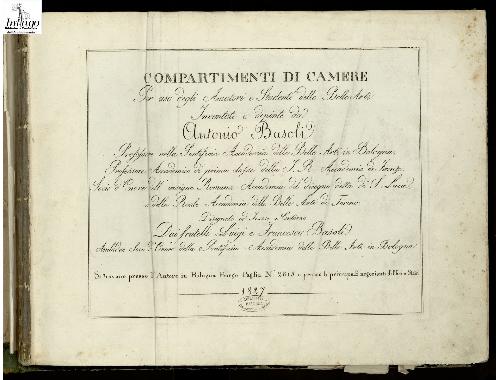 COMPARTIMENTI DI CAMERE
Per uso degli Amatori e Studenti delle Belle Arti
Inventati e dipinti da
Antonio Basoli
Professore nella Pontificia Accademia delle Belle Arti in Bologna
Professore Accademico di prima classe della I. R. Accademia di Firenze
Socio d'Onore dell' insigne Romana Accademia del disegno detta di S. Luca
e della Reale Accademia delle Belle Arti di Torino
Disegnati ed Incisi a Contorno
Dai fratelli Luigi e Francesco Basoli
Ambedue Soci d'Onore della Pontificia Accademia delle Belle Arti in Bologna
Si trovano presso l'Autore in Bologna Borgo Paglia N.º e presso i principali negozianti di Stampe
1827